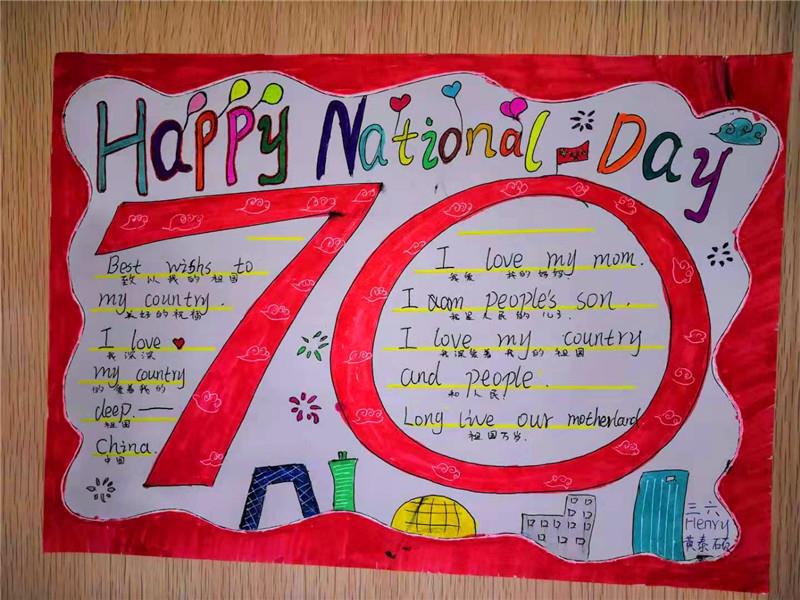 Happy National Day
70
Best wishs to
致以我的祖国
my country.
美好的祝福
I love
我深深
my country
的爱着我的
deep.——
祖国
China.
中国
I love my mom.
我爱 我的妈妈.
I am people's son.
我是人民的儿子
I love my country
我深爱着我的祖国
and people.
和人民
Long live our motherland.
祖国万岁.
三六
Henry
黄泰